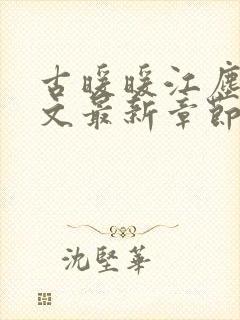 古暖暖江塵
文最新章節
沈堅華